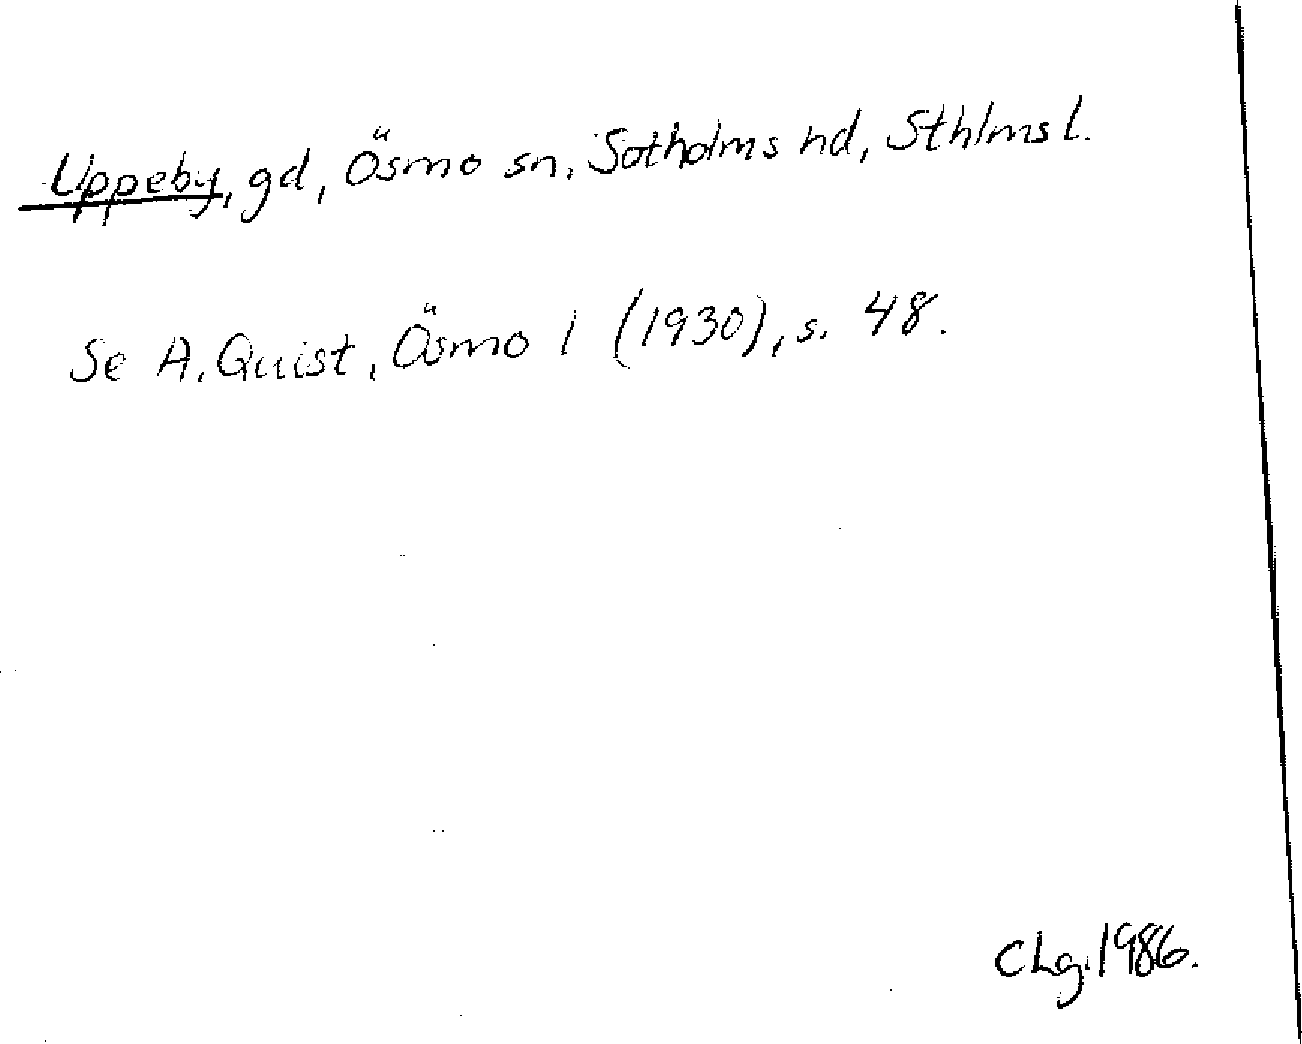 Uppeby, gd, Ösmo sn, Sotholms hd, Sthlms l.
Se A. Quist, Ösmo 1 (1930), s. 48.
CLg. 1986.